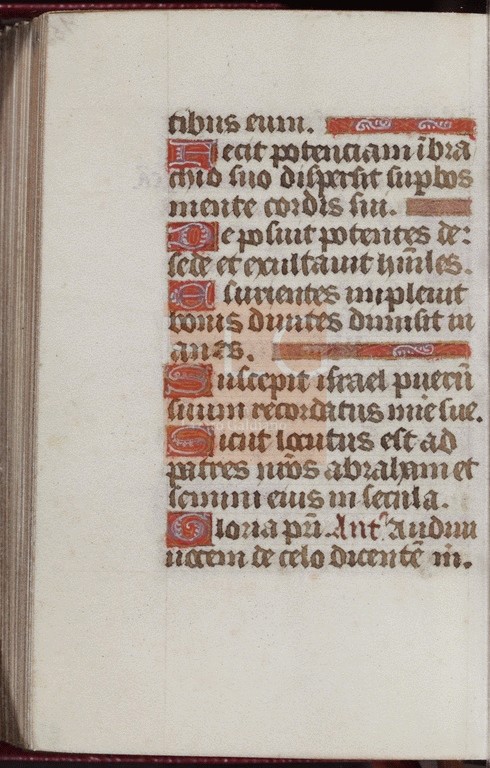 tibus eum.
Fecit potenciam ī bra
chio suo dispersit supbos
mente cordis sui.
Deposuit potentes de:
sede et exultauit hūiles.
Esurientes impleuit
bonis diuites dimisit in
anes.
Suscepit israel puerū
suum recordatus mie sue.
Sicut locutus est ad
patres nr̄os abraham et
semini eius in secula.
Gloria pr̄i. Antˢ. Audiui
uocem de celo dicentē m.